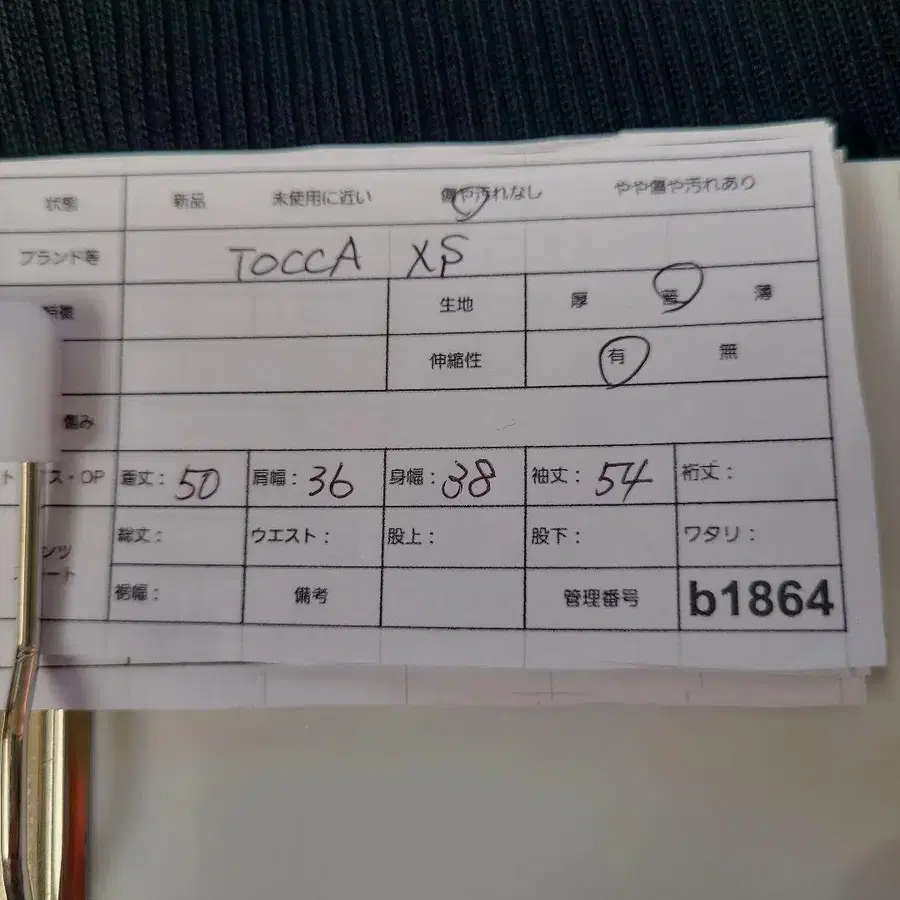 状態 新品 未使用に近い 傷や汚れなし やや傷や汚れあり
ブランド等 TOCCA XS
生地 厚 普 薄
伸縮性 有 無
傷み
ス・OP 着丈：50 肩幅：36 身幅：38 袖丈：54 裄丈：
総丈： ウエスト： 股上： 股下： ワタリ：
ンツ
ート
裾幅： 備考 管理番号 b1864